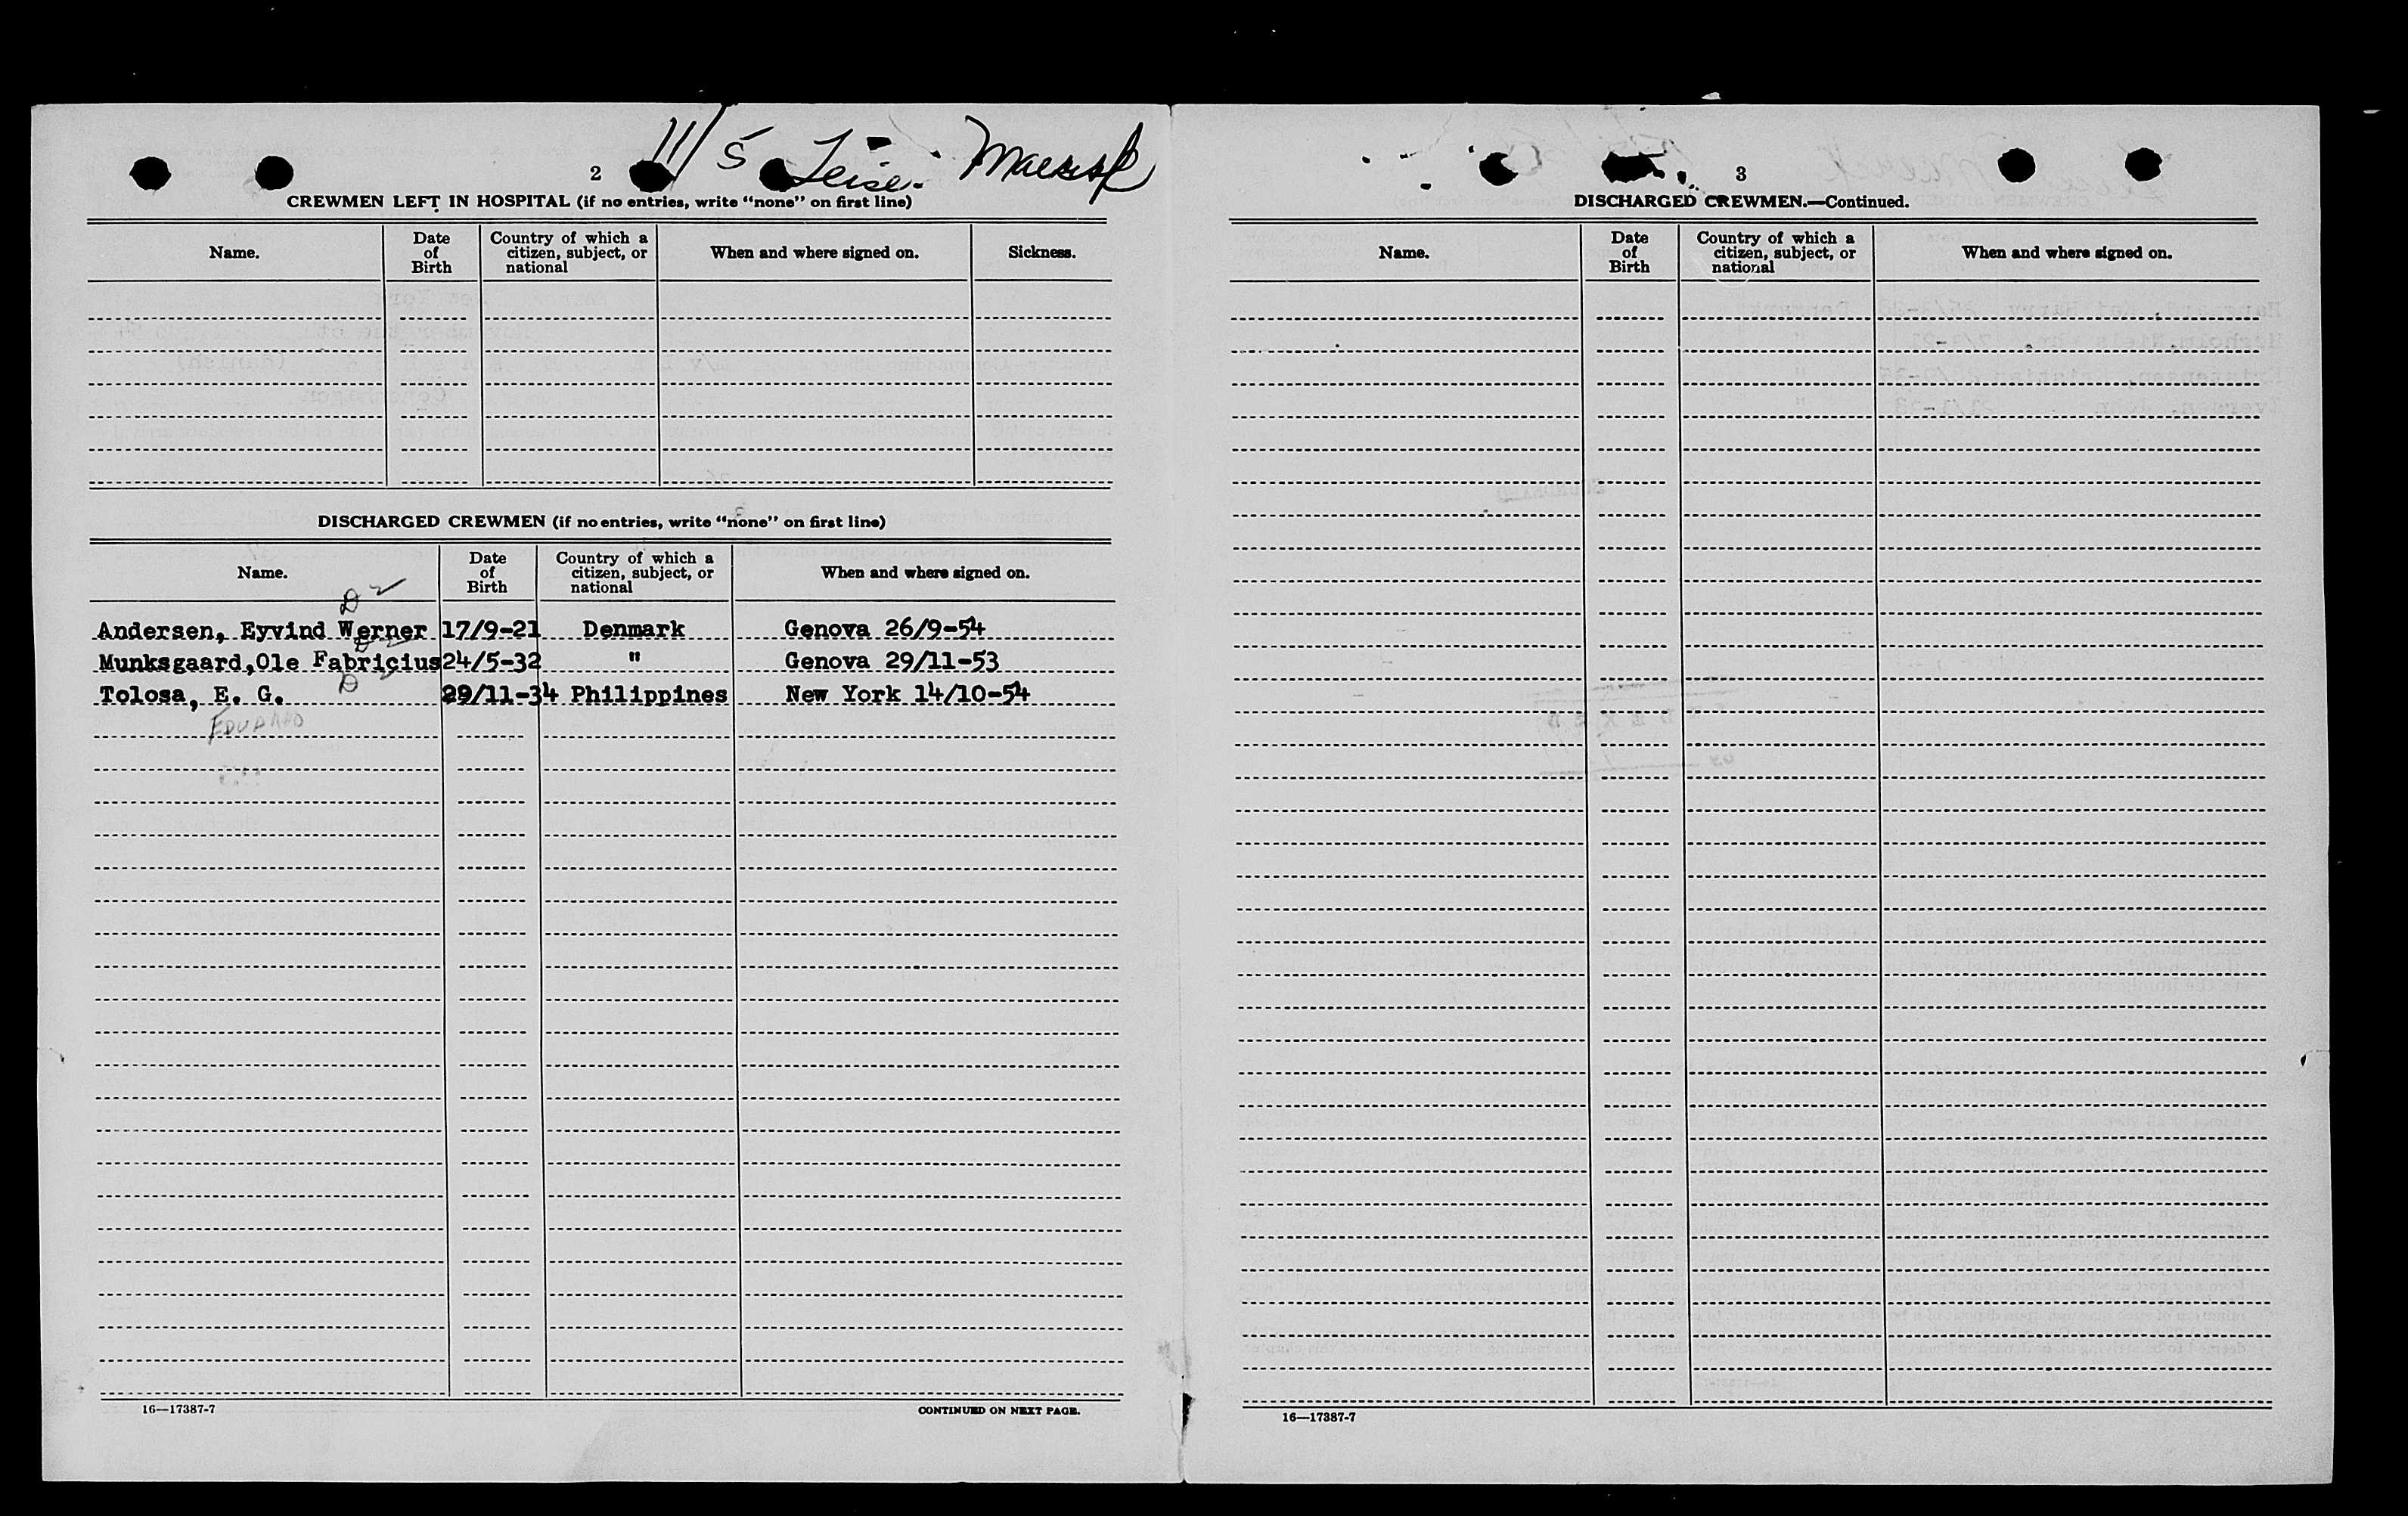 11/5 Leise Maersk
2
CREWMEN LEFT IN HOSPITAL (if no entries, write "none" on first line)
Name. Date of Birth Country of which a citizen, subject, or national When and where signed on. Sickness.
DISCHARGED CREWMEN (if no entries, write "none" on first line)
Name. Date of Birth Country of which a citizen, subject, or national When and where signed on.
D
Andersen, Eyvind Werner 17/9-21 Denmark Genova 26/9-54
D
Munksgaard,Ole Fabricius 24/5-32 " Genova 29/11-53
D
Tolosa, E. G. 29/11-34 Philippines New York 14/10-54
EDUARDO
16—17387-7
CONTINUED ON NEXT PAGE.
3
DISCHARGED CREWMEN.—Continued.
Name. Date of Birth Country of which a citizen, subject, or national When and where signed on.
16—17387-7